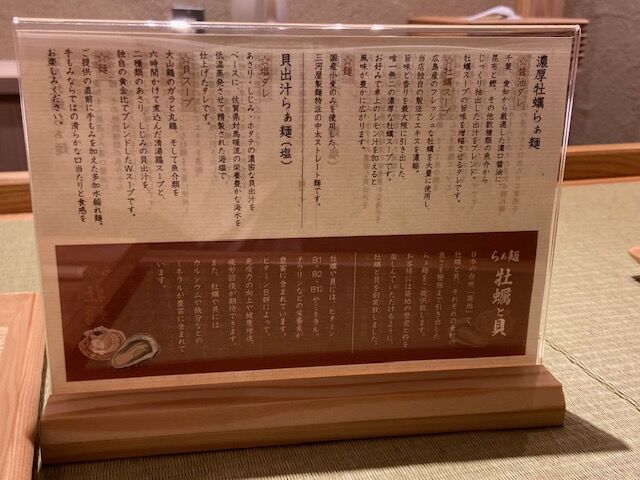 濃厚牡蠣らぁ麺
☆醤油タレ
千葉、愛知から厳選した濃口醤油に、
昆布と鰹、その他数種類の魚介から
じっくり抽出した出汁をブレンド。
牡蠣スープの旨味を増幅させるタレです。
☆牡蠣スープ
広島産のフレッシュな牡蠣を大量に使用し、
当店独自の製法でエキスを濃縮。
旨味と香りを最大限に引き出した、
唯一無二の濃厚な牡蠣スープです。
お好みで卓上のレモン汁を加えると
風味が豊かに広がります。
☆麺
国産小麦のみを使用した、
三河屋製麺特注の中太ストレート麺です。
貝出汁らぁ麺(塩)
☆塩タレ
あさり・しじみ・ホタテの濃密な貝出汁を
ベースに、佐賀県対馬暖流の栄養豊かな海水を
低温蒸発させて精製された海塩で
仕上げたタレです。
☆貝スープ
大山鶏のガラと丸鶏、そして魚介類を
六時間かけて煮込んだ清湯鶏スープと、
二種類のあさり、しじみの貝出汁を、
独自の黄金比でブレンドしたWスープです。
☆麺
ご提供の直前に手もみを加えた多加水縮れ麺。
手もみならではの滑らかな口当たりと食感を
お楽しみください。
らぁ麺
牡蠣と貝
牡蠣と貝、それぞれの素材の
良さを極限まで引き出した
らぁ麺をご提供致します。
お客様には該地の歴史と粋を
楽しんでいただけるように、
牡蠣と貝を創業致しました。
牡蠣や貝には、ビタミン
B1、B2、B12やミネラル、
タウリンなどの栄養素が
豊富に含まれています。
ビタミンB群によって、
免疫力の向上や健康増進、
疲労回復が期待できます。
また、牡蠣や貝には
カルシウムや鉄分などの
ミネラルが豊富に含まれて
います。